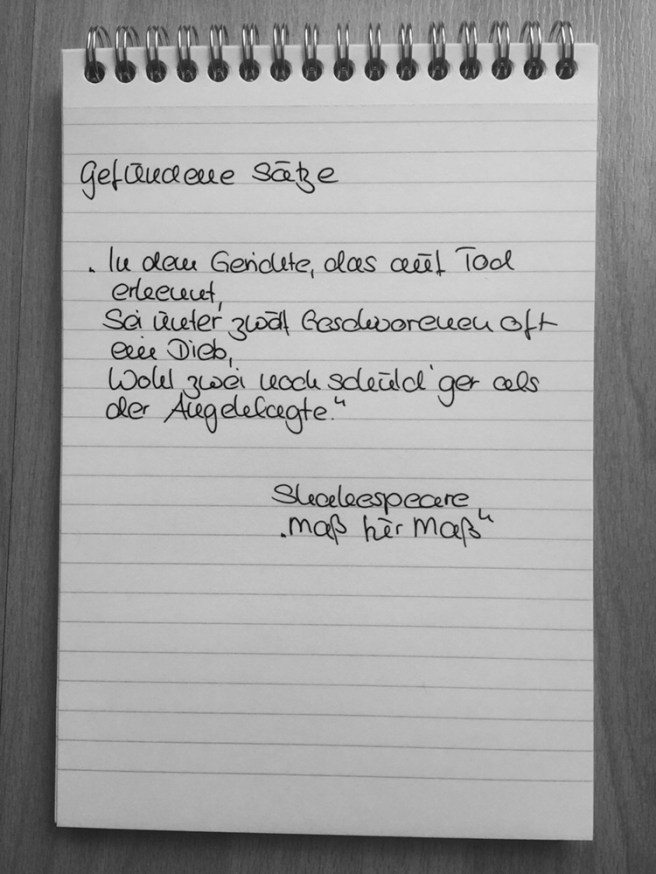 Gefundene Sätze
„In dem Gerichte, das auf Tod
erkennt,
Sei unter zwölf Geschworenen oft
ein Dieb,
Wohl zwei noch schuld'ger als
der Angeklagte."
Shakespeare
„Maß für Maß"